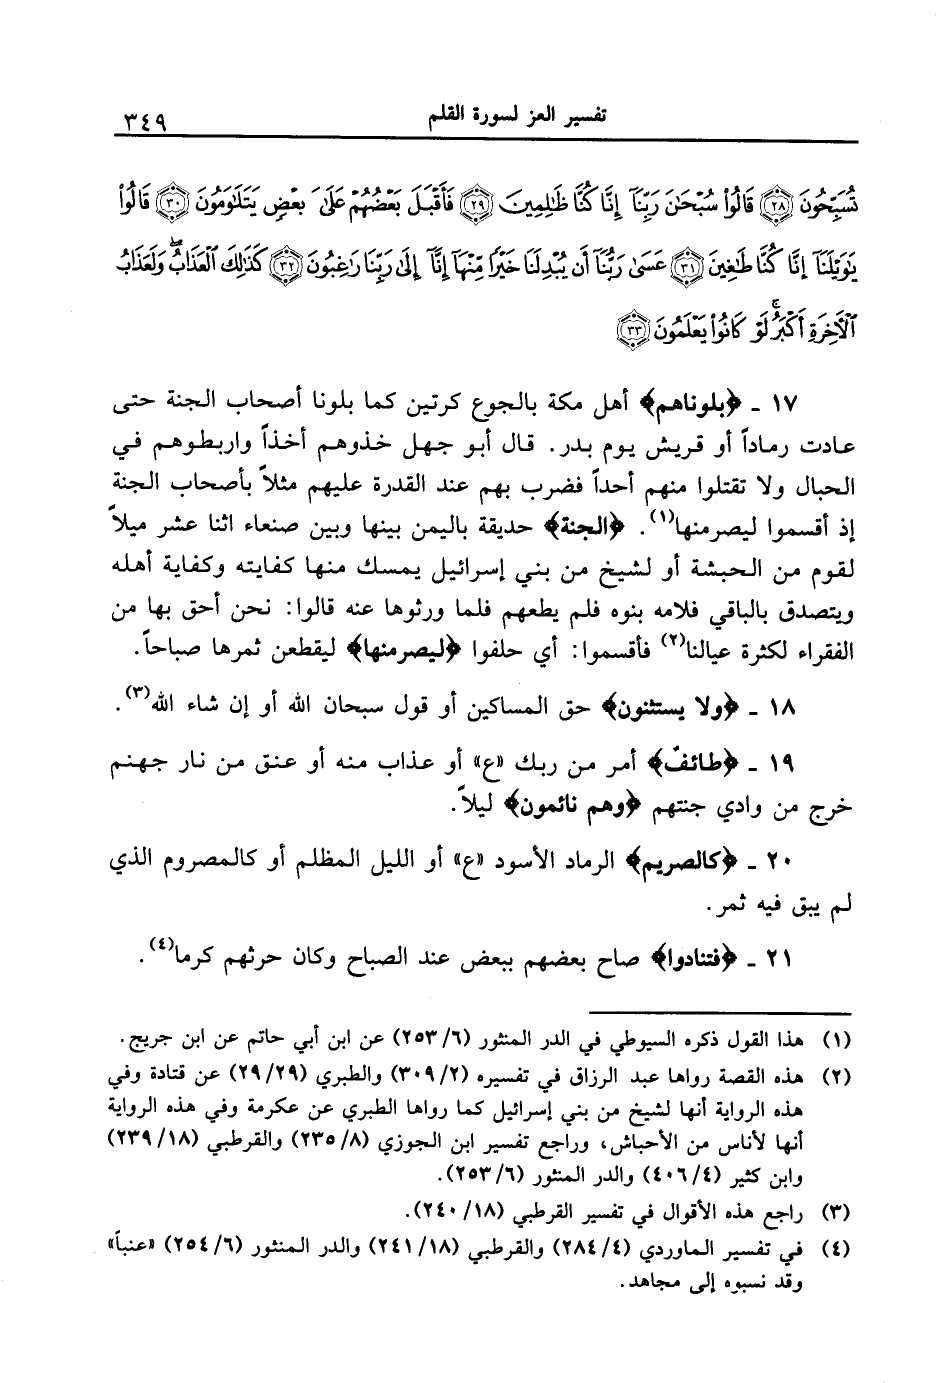 تفسير العز لسورة القلم
٣٤٩
تُسَبِّحُونَ ۝٢٨ قَالُوا۟ سُبْحَـٰنَ رَبِّنَآ إِنَّا كُنَّا ظَـٰلِمِينَ ۝٢٩ فَأَقْبَلَ بَعْضُهُمْ عَلَىٰ بَعْضٍ يَتَلَـٰوَمُونَ ۝٣٠ قَالُوا۟
يَـٰوَيْلَنَآ إِنَّا كُنَّا طَـٰغِينَ ۝٣١ عَسَىٰ رَبُّنَآ أَن يُبْدِلَنَا خَيْرًا مِّنْهَآ إِنَّآ إِلَىٰ رَبِّنَا رَٰغِبُونَ ۝٣٢ كَذَٰلِكَ ٱلْعَذَابُ ۖ وَلَعَذَابُ
ٱلْـَٔاخِرَةِ أَكْبَرُ ۚ لَوْ كَانُوا۟ يَعْلَمُونَ ۝٣٣
١٧ ـ ﴿بلوناهم﴾ أهل مكة بالجوع كرتين كما بلونا أصحاب الجنة حتى
عادت رماداً أو قريش يوم بدر. قال أبو جهل خذوهم أخذاً واربطوهم في
الحبال ولا تقتلوا منهم أحداً فضرب بهم عند القدرة عليهم مثلاً بأصحاب الجنة
إذ أقسموا ليصرمنها(١). ﴿الجنة﴾ حديقة باليمن بينها وبين صنعاء اثنا عشر ميلاً
لقوم من الحبشة أو لشيخ من بني إسرائيل يمسك منها كفايته وكفاية أهله
ويتصدق بالباقي فلامه بنوه فلم يطعهم فلما ورثوها عنه قالوا: نحن أحق بها من
الفقراء لكثرة عيالنا(٢) فأقسموا: أي حلفوا ﴿ليصرمنها﴾ ليقطعن ثمرها صباحاً.
١٨ ـ ﴿ولا يستثنون﴾ حق المساكين أو قول سبحان الله أو إن شاء الله(٣).
١٩ ـ ﴿طائفٌ﴾ أمر من ربك «ع» أو عذاب منه أو عنق من نار جهنم
خرج من وادي جنتهم ﴿وهم نائمون﴾ ليلاً.
٢٠ ـ ﴿كالصريم﴾ الرماد الأسود «ع» أو الليل المظلم أو كالمصروم الذي
لم يبق فيه ثمر.
٢١ ـ ﴿فتنادوا﴾ صاح بعضهم ببعض عند الصباح وكان حرثهم كرما(٤).
(١) هذا القول ذكره السيوطي في الدر المنثور (٢٥٣/٦) عن ابن أبي حاتم عن ابن جريج.
(٢) هذه القصة رواها عبد الرزاق في تفسيره (٣٠٩/٢) والطبري (٢٩/٢٩) عن قتادة وفي
هذه الرواية أنها لشيخ من بني إسرائيل كما رواها الطبري عن عكرمة وفي هذه الرواية
أنها لأناس من الأحباش، وراجع تفسير ابن الجوزي (٢٣٥/٨) والقرطبي (٢٣٩/١٨)
وابن كثير (٤٠٦/٤) والدر المنثور (٢٥٣/٦).
(٣) راجع هذه الأقوال في تفسير القرطبي (٢٤٠/١٨).
(٤) في تفسير الماوردي (٢٨٤/٤) والقرطبي (٢٤١/١٨) والدر المنثور (٢٥٤/٦) «عنباً»
وقد نسبوه إلى مجاهد.